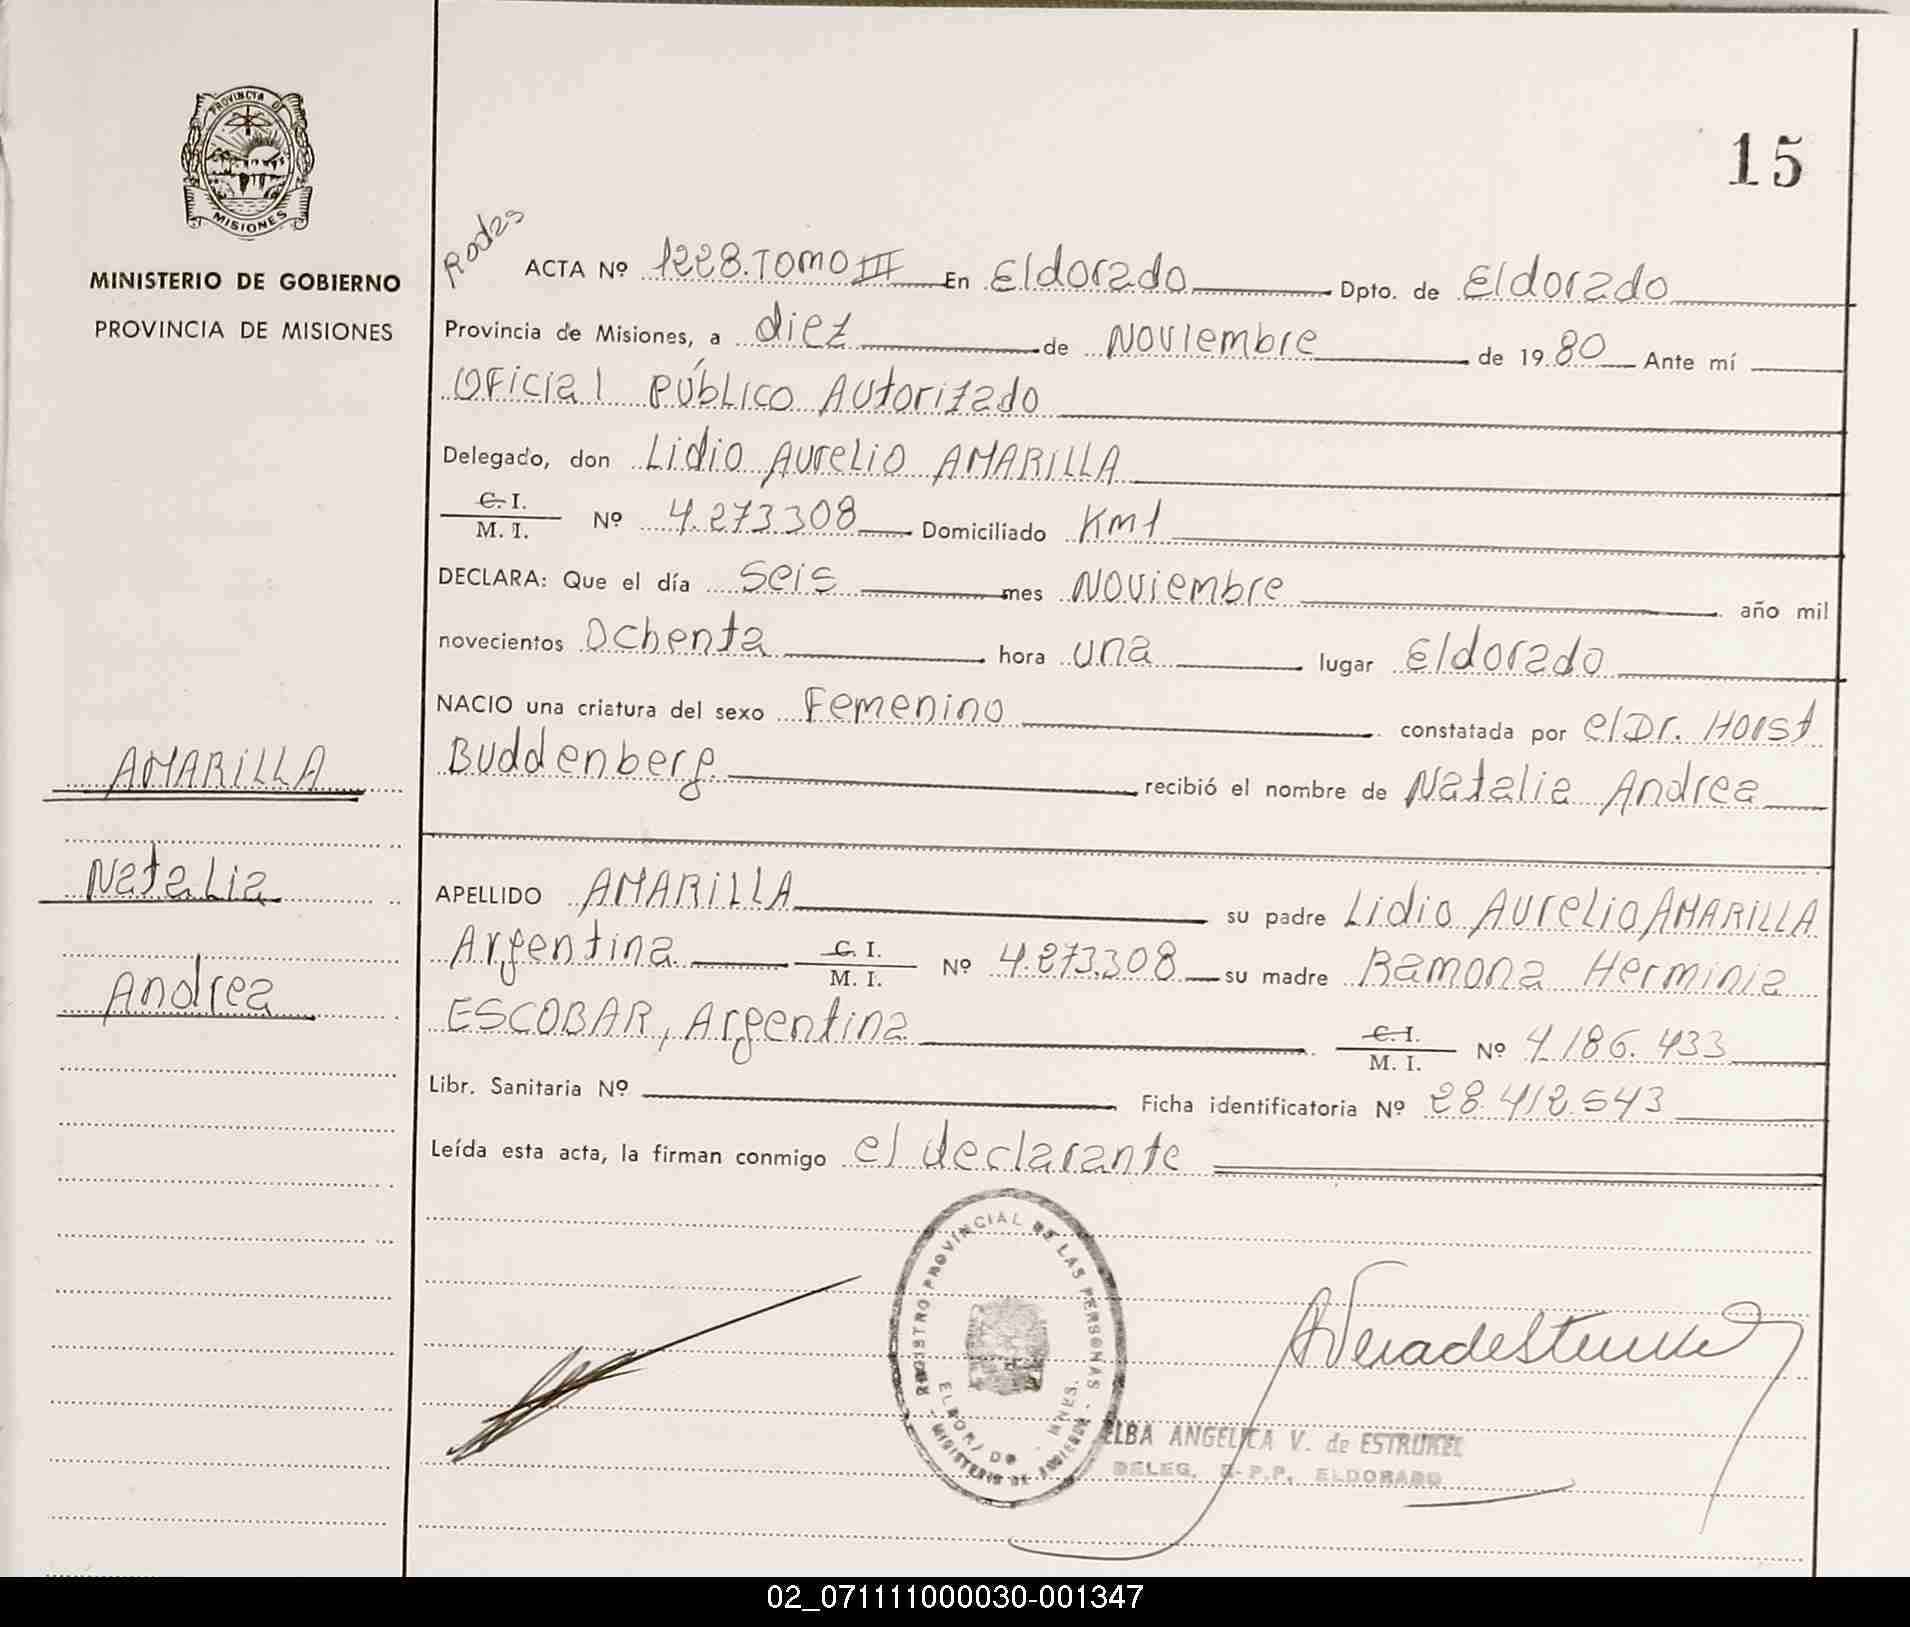 PROVINCIA DE
MISIONES
MINISTERIO DE GOBIERNO
PROVINCIA DE MISIONES
AMARILLA
Natalia
Andrea
15
Rodas
ACTA Nº 1228.TOMO III En Eldorado Dpto. de Eldorado
Provincia de Misiones, a diez de Noviembre de 1980 Ante mí
Oficial Público Autorizado
Delegado, don Lidio Aurelio AMARILLA
C. I.
M. I. Nº 4.273.308 Domiciliado Km1
DECLARA: Que el día seis mes Noviembre año mil
novecientos Ochenta hora una lugar Eldorado
NACIO una criatura del sexo Femenino constatada por el Dr. Horst
Buddenberg recibió el nombre de Natalia Andrea
APELLIDO AMARILLA su padre Lidio Aurelio AMARILLA
Argentina C. I.
M. I. Nº 4.273.308 su madre Ramona Herminia
ESCOBAR, Argentina C. I.
M. I. Nº 4.186.433
Libr. Sanitaria Nº Ficha identificatoria Nº 28.412.543
Leída esta acta, la firman conmigo el declarante
REGISTRO PROVINCIAL DE LAS PERSONAS -
ELDORADO - MNES.
- MINISTERIO DE
ELBA ANGELICA V. de ESTRUKEL
DELEG. R.P.P. ELDORADO
02_071111000030-001347